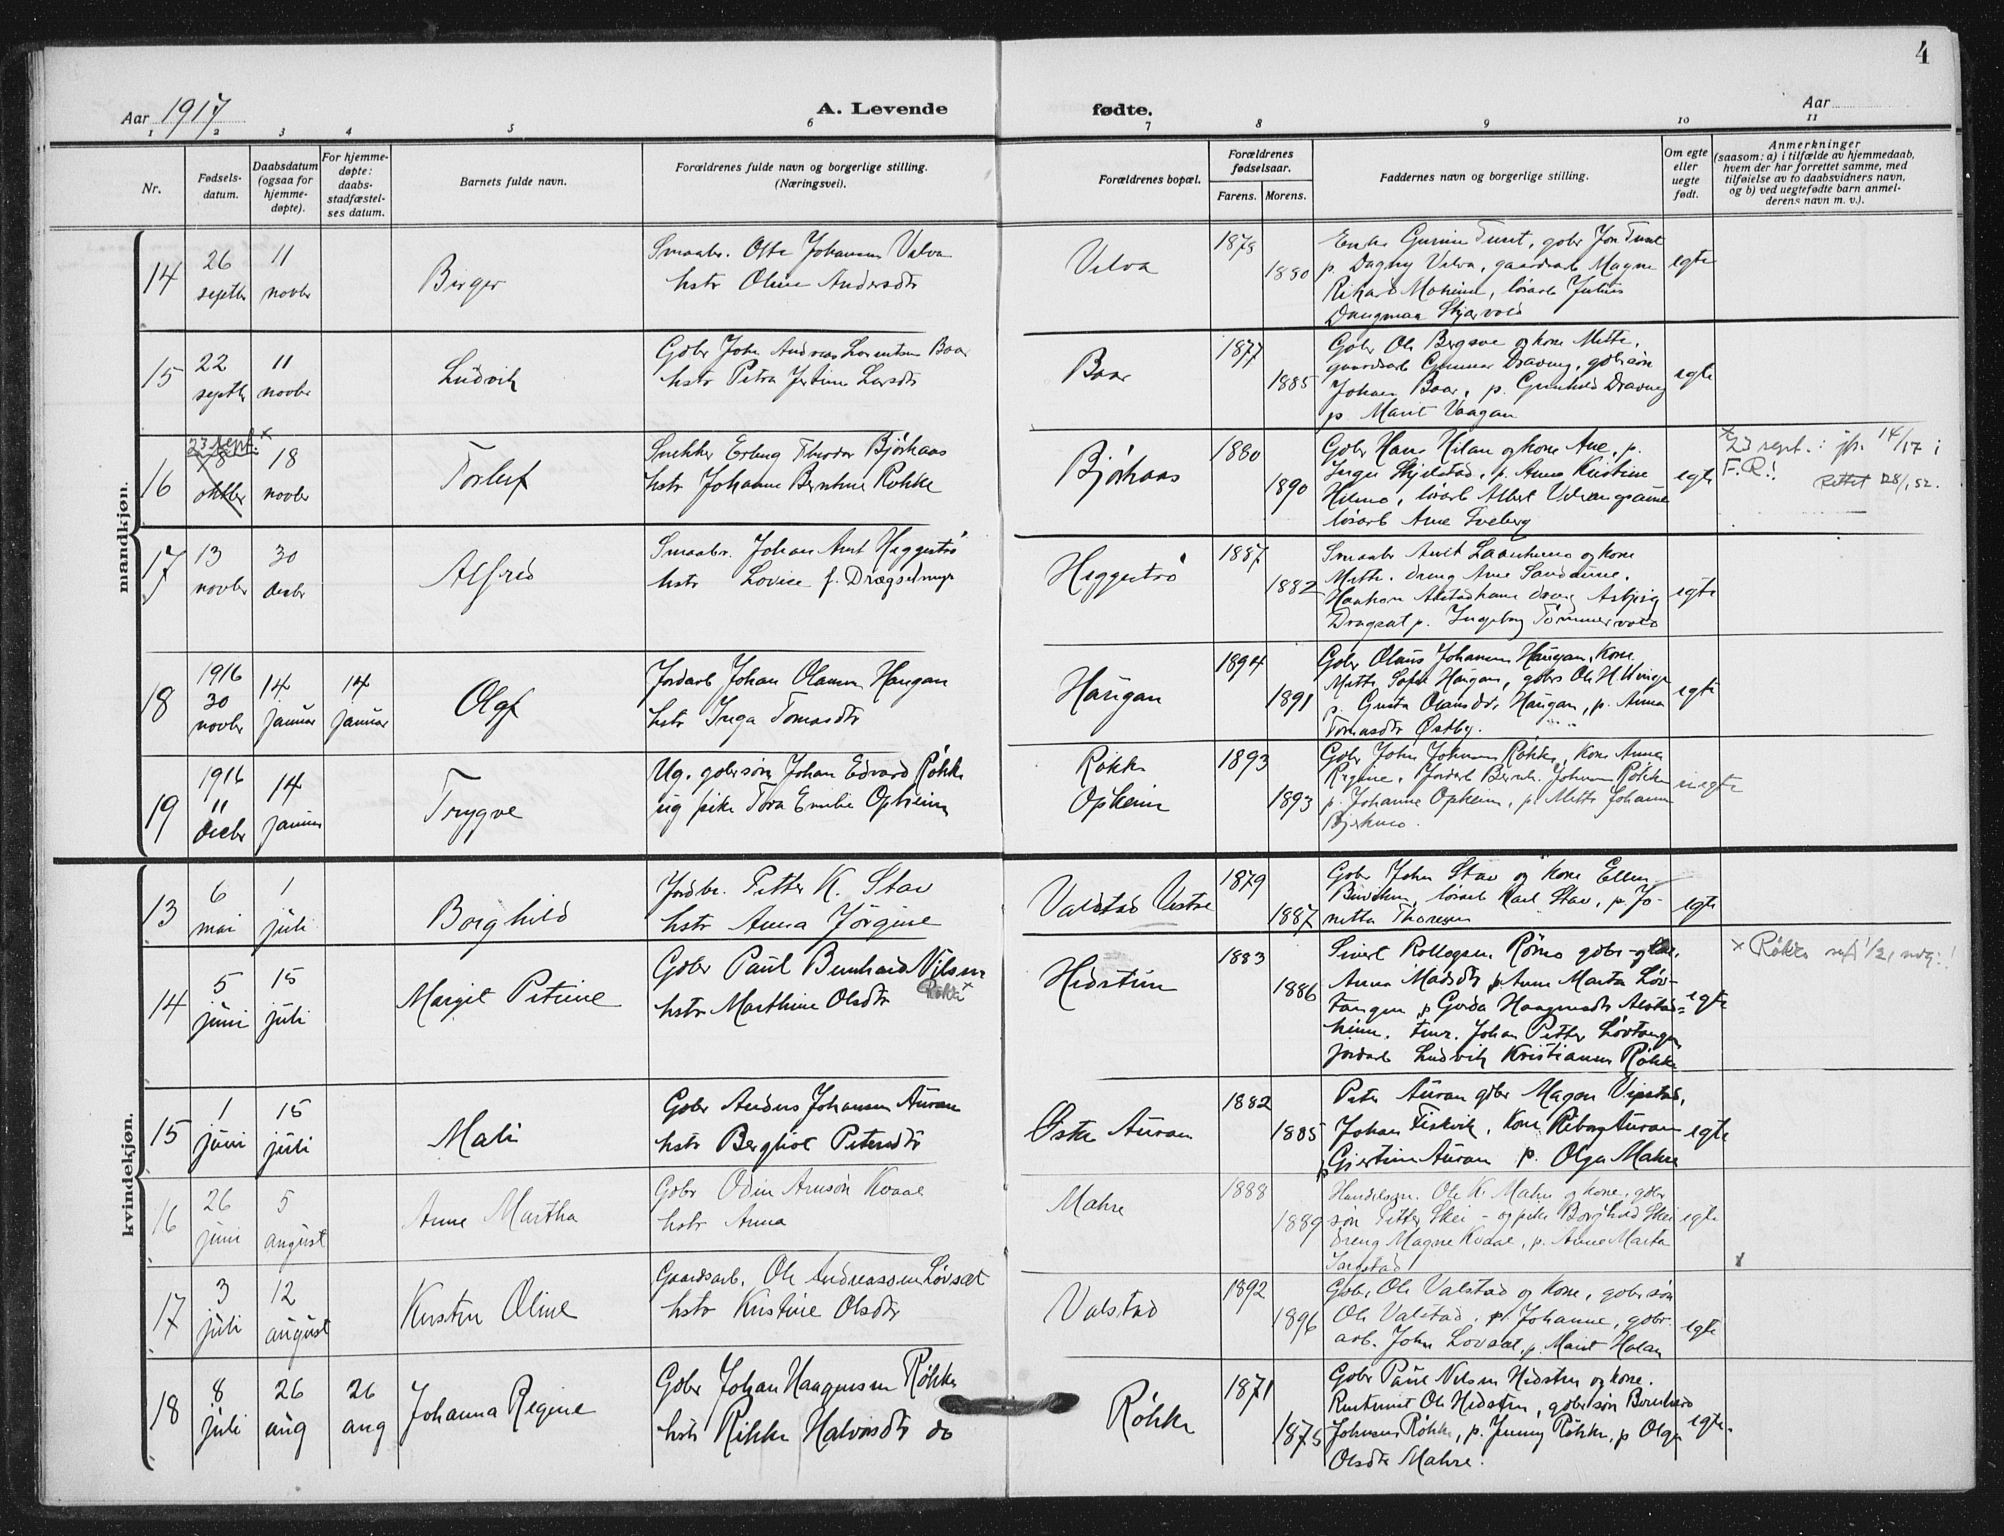 4
Aar 1917
A. Levende
fødte.
Aar
1 2 3 4 5 6 7 8 9 10 11
Nr.
Fødsels-
datum.
Daabsdatum
(ogsaa for
hjemme-
døpte).
For hjemme-
døpte:
daabs-
stadfæstel-
ses datum.
Barnets fulde navn.
Forældrenes fulde navn og borgerlige stilling.
(Næringsvei).
Forældrenes bopæl.
Forældrenes
fødselsaar.
Farens. Morens.
Faddernes navn og borgerlige stilling.
Om egte
eller
uegte
født.
Anmerkninger
(saasom: a) i tilfælde av hjemmedaab,
hvem der har forrettet samme, med
tilføielse av to daabsvidners navn,
og b) ved uegtefødte barn anmel-
derens navn m. v.).
mandkjøn.
14
26
septbr
11
novbr
Birger
Smaabr. Otto Johansen Velva
hstr Oline Andersdtr
Velva
1879
1880
p. Dagny Velva, gaardarb Magne
egte
15
22
septbr
11
novbr
Ludvik
Gbr John Andreas Lorentsen Baar
hstr Petra Jertine Larsdtr
Baar
1877
1885
Gbr Ole Bergsve og kone Mette,
gaardarb Gunnar Dravung, gbrsøn
Johan Baar, p. Gunhild Dravung
p. Marit Vaagan
egte
16
23 sept. x
18
oktbr
18
novbr
Torleif
Snekker Erling Theodor Bjørhaas
hstr Johanne Bernhine Røkke
Bjørhaas
1880
1890
Gbr Hans Hilan og kone Ane, p.
Inga Skjelstad, p. Anna Kristine
løsarb Arne Tveberg
egte
x 23 sept. : jfr. 14/17 i
F. R.!
Rettet 28/1 52.
17
13
novbr
30
decbr
Alfred
Smaabr. Johan Arnt Heggestrø
hstr Lovise f. Dragsetmyr
Heggestrø
1887
1882
Dragsat p. Ingeborg Tømmervold
egte
18
1916
30
novbr
14
januar
14
januar
Olaf
Jordarb Johan Olausen Haugan
hstr Inga Tomasdtr
Haugan
1894
1891
Gbr Olaus Johansen Haugan, kone
p. Gusta Olausdtr Haugan, p. Anna
Tomasdtr Østby.
egte
19
1916
11
decbr
14
januar
Trygve
Ug. gbrsøn Johan Edvard Røkke
ug pike Tora Emilie Opheim
Røkke
Opheim
1893
1893
Gbr John Johnsen Røkke, kone Anna
Regine, Jordarb Bernh. Johnsen Røkke
p. Johanne Opheim, p. Mette Johansen
Bjerkmo.
uegte
kvindekjøn.
13
6
mai
1
juli
Borghild
Jordbr. Petter K. Stav
hstr Anna Jørgine
Valstad Vestre
1879
1887
Gbr John Stav og kone Ellen
løsarb Karl Stav, p. Jo-
netta Thoresen
egte
14
5
juni
15
juli
Margit Petrine
Gbr Paul Bernhard Nilsen
Røkke x
hstr Marthine Olsdtr
Hidstun
1883
1886
Sivert Rollogsen Rømo gbr
Anna Madsdtr p Anne Marta Løv-
tangen p Gorda Haagensdtr Alstad-
heim. Johan Petter Løvtangen
jordarb Ludvik Kristiansen Røkke
egte
x Røkke
15
1
juni
15
juli
Mali
Gbr Anders Johansen Auran
hstr Bergliot Petersdtr
Østre Auran
1882
1885
Peter Auran gbr Magon Vipstad,
Johan Fiskvik, kone Riborg Auran
p Gjertine Auran p. Olga Mahre
egte
16
26
juni
5
august
Anne Martha
Gbr Odin Arnsøn Kvaal
hstr Anna
Mahre
1888
1889
Handelsm. Ole K. Mahre og kone, gbr
søn Petter Skei - og pike Borghild Skei
dreng Magne Kvaal, p. Anne Marta
egte
x
17
3
juli
12
august
Kirsten Oline
Gaardsarb. Ole Andreassen Løvsæt
hstr Kristine Olsdtr
Valstad
1892
1896
Gbr Ole Valstad og kone, gbrsøn
Ole Valstad. p. Johanne, gbr.
arb. John Lovsæt, p. Marit Holan
egte
18
8
juli
26
aug
26
aug
Johanna Regine
Gbr Johan Haagensen Røkke
hstr Rikke Halvorsdtr do
Røkke
1871
1875
Gbr Paul Nilsen Hidsten og kone.
Rentenist Ole Hidsten, gbrsøn Bernhard
Johnsen Røkke, p. Jenny Røkke, p Olga
Olsdtr Mahre.
egte